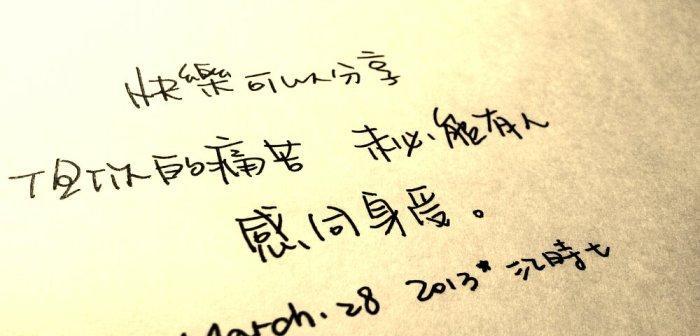 快樂可以分享
但你的痛苦 未必能有人
感同身受。
March.28 2013* 沉時七